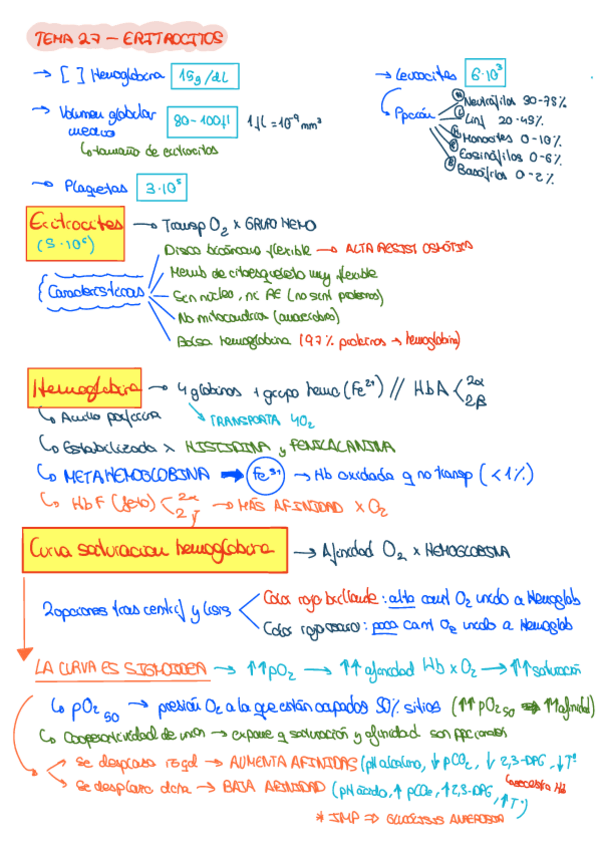 TEMA 27 - ERITROCITOS
→ [ ] Hemoglobina 15g/dL
→ Leucocitos 6·10³
→ Volumen globular medio 80-100fl 1fL = 10⁻⁹ mm³
↳ tamaño de eritrocitos
Ppción
Neutrófilos 30-75%
Linf 20-45%
Monocitos 0-10%
Eosinófilos 0-6%
Basófilos 0-2%
→ Plaquetas 3·10⁵
Eritrocitos (5·10⁶) → Transp O₂ x GRUPO HEMO
Características
Disco bicóncavo flexible → ALTA RESIST OSMÓTICA
Memb de citoesqueleto muy flexible
Sin núcleo, ni RE (no sint proteínas)
No mitocondrias (anaerobio)
Bolsa hemoglobina (97% proteínas → hemoglobina)
Hemoglobina → 4 globinas + grupo hemo (Fe²⁺) // HbA < 2α 2β
↳ Anillo porfirina ↳ TRANSPORTA 4O₂
↳ Estabilizada x HISTIDINA y FENILALANINA
↳ METAHEMOGLOBINA → Fe³⁺ → Hb oxidada q no transp (<1%)
↳ HbF (feto) < 2α 2γ → MÁS AFINIDAD x O₂
Curva saturación hemoglobina → Afinidad O₂ x HEMOGLOBINA
2 opciones tras centrif y lisis
Color rojo brillante: alta cant O₂ unido a Hemoglob
Color rojo oscuro: poca cant O₂ unido a Hemoglob
LA CURVA ES SIGMOIDEA → ↑↑pO₂ → ↑↑ afinidad Hb x O₂ → ↑↑ saturación
↳ pO₂ 50 → presión O₂ a la que están ocupados 50% sitios (↑↑ pO₂ 50 → ↑↑ afinidad)
↳ Cooperatividad de unión → expone q saturación y afinidad son ppcionales
→ Se desplaza izqd → AUMENTA AFINIDAD (pH alcalino, ↓ pCO₂, ↓ 2,3-DPG, ↓Tª
→ Se desplaza dcha → BAJA AFINIDAD (pH ácido, ↑ pCO₂, ↑ 2,3-DPG, ↑Tª)
* IMP ⇒ GLUCÓLISIS ANAEROBIA